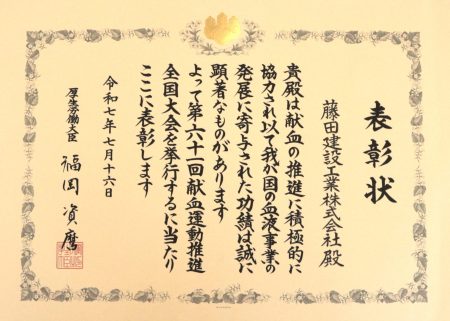 表彰状
藤田建設工業株式会社 殿
貴殿は献血の推進に積極的に
協力され以て我が国の血液事業の
発展に寄与された功績は誠に
顕著なものがあります
よって第六十一回献血運動推進
全国大会を挙行するに当たり
ここに表彰します
令和七年七月十六日
厚生労働大臣 福岡資麿